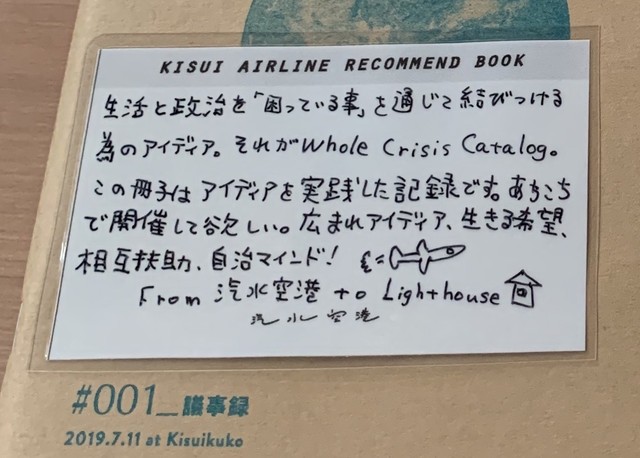 KISUI AIRLINE RECOMMEND BOOK
生活と政治を「困っている事」を通じて結びつける
為のアイディア。それがWhole Crisis Catalog。
この冊子はアイディアを実践した記録です。あちこち
で開催して欲しい。広まれアイディア、生きる希望、
相互扶助、自治マインド!
From 汽水空港 to Lighthouse
汽水空港
#001_議事録
2019.7.11 at Kisuikuko